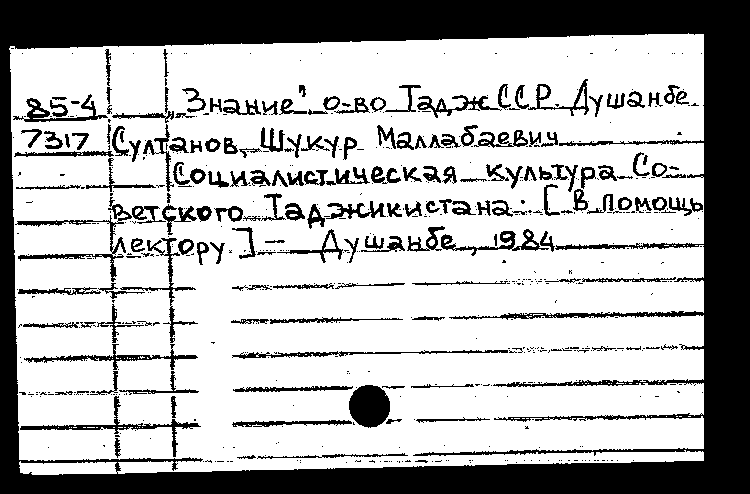 85-4 „Знание" о-во ТаджССР. Душанбе.
7317 Султанов, Шукур Маллабаевич
Социалистическая культура Со-
ветского Таджикистана: [В помощь
лектору] — Душанбе, 1984